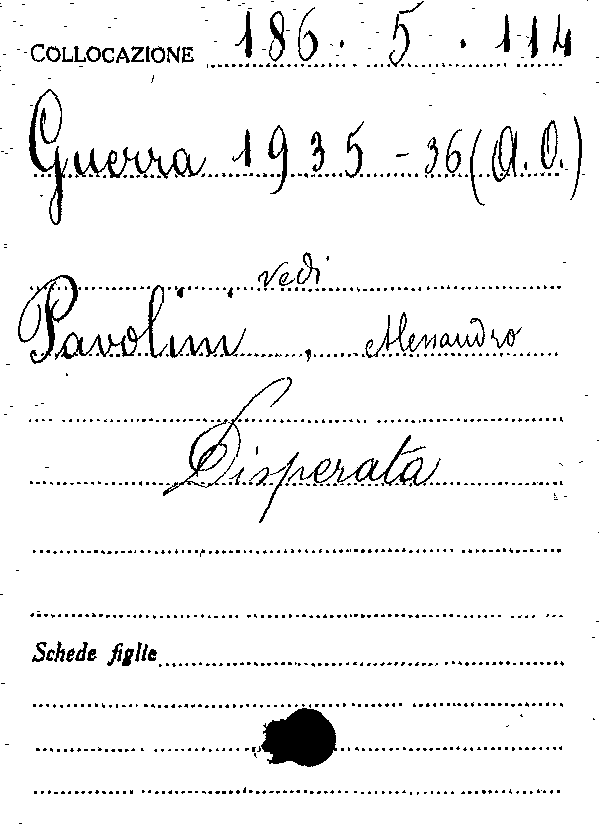 COLLOCAZIONE 186. 5. 114
Guerra 1935-36 (A.O.)
vedi
Pavolini, Alessandro
Disperata
Schede figlie